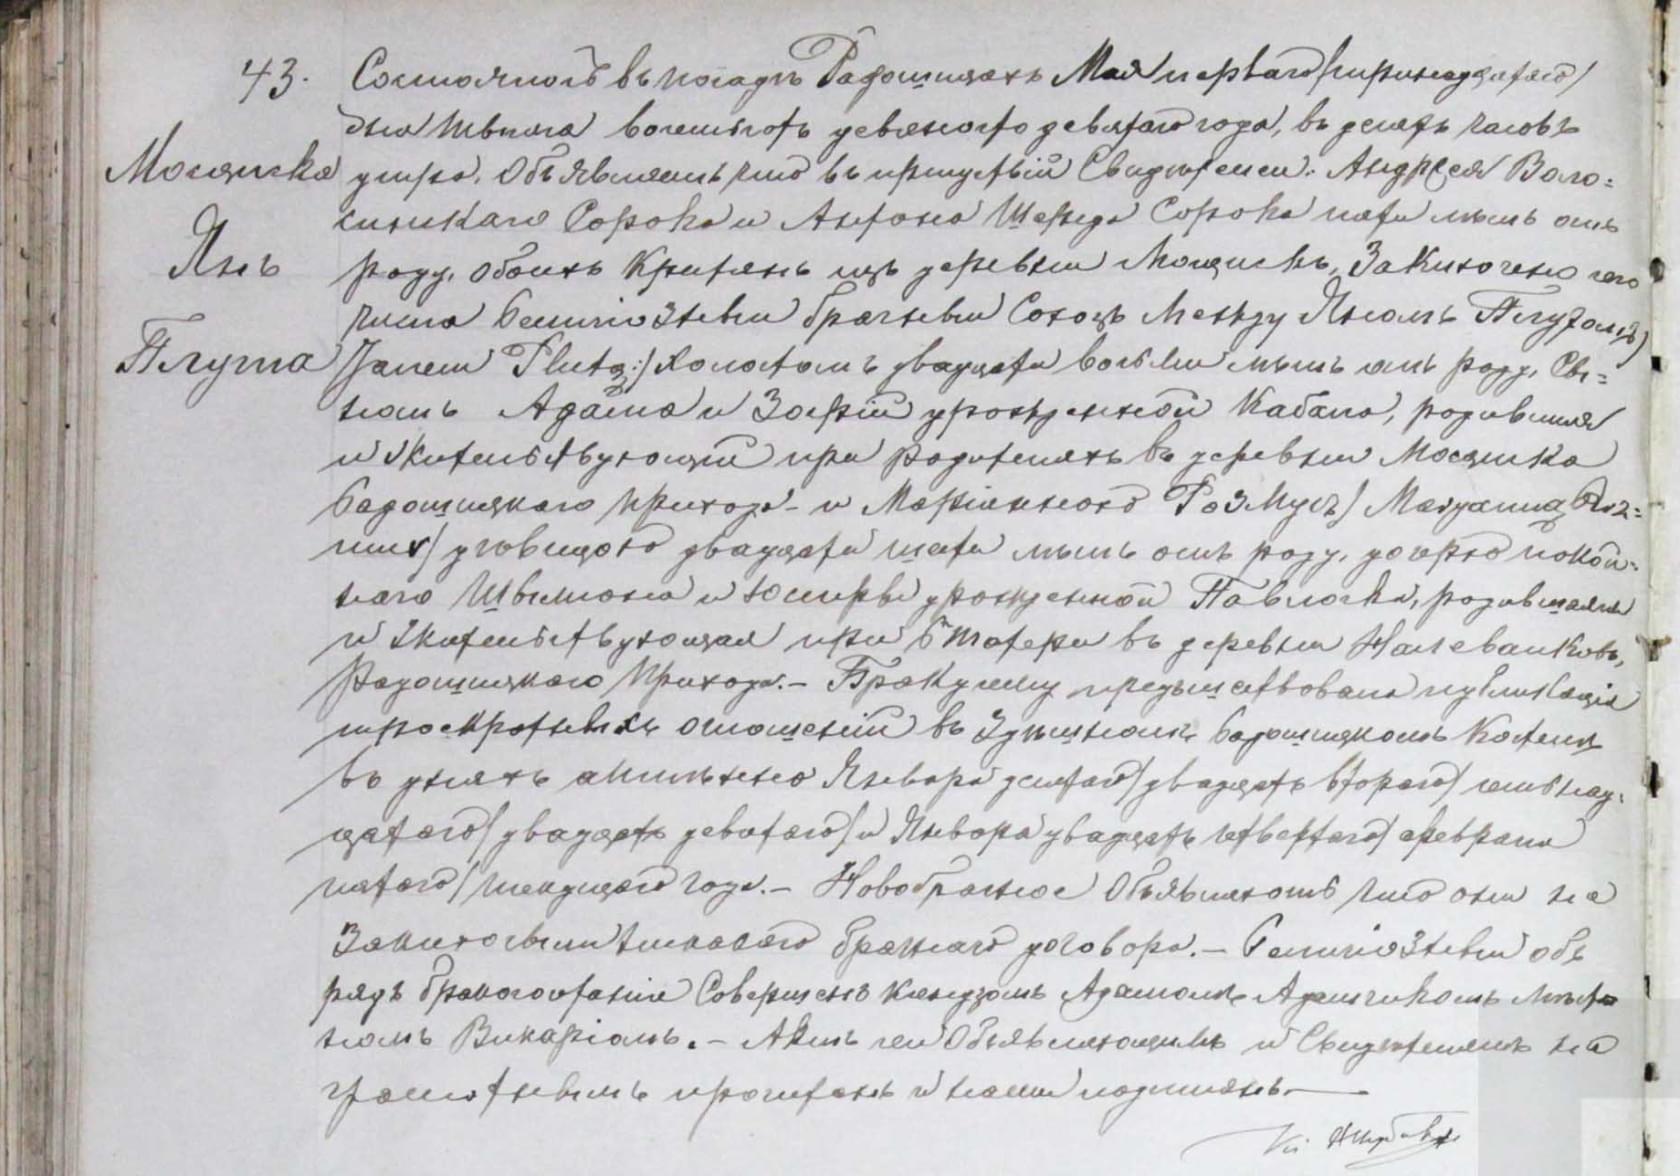 43.
Состоялось въ посадѣ Радошицахъ Мая перваго /тринадцатаго/
дня тысяча восемьсотъ девяносто девятаго года, въ десять часовъ
Мосциска
утра. Объявляемъ что въ присутствіи Свидѣтелей: Андрея
Сорока и Антона Сорока лѣтъ отъ
Янъ
роду, обоихъ Крестьянъ изъ деревни Мосцискъ, Заключено сего
числа Религіозный брачный Союзъ Между Яномъ Плутомъ
Плута
/Janem Plutą:/ Холостомъ двадцати восьми лѣтъ отъ роду, Сы=
номъ Адама и Зофіи урожденной Кабала, родившимся
и Жительствующій при Родителяхъ въ деревни Мосциска
Радошицкаго Прихода - и Марianною Розмусъ / Maryanną Roz=
mus / дѣвицею двадцати шести лѣтъ отъ роду, дочерью покой=
наго Шымона и Юзефы урожденной Павлоска, родившаяся
и Жительствующая при Матери въ деревни Налеваіковъ,
Радошицкаго Прихода. - Браку сему предшествовали публикаціи
троекратныхъ оглашеній въ здѣшномъ Радошицкомъ Костелѣ
въ дняхъ Января десятаго / двадцать втораго / семнад=
цатаго / двадцать девятаго / и Января двадцать четвертаго / февраля
пятаго / текущаго года. - Новобрачные Объявляютъ что они не
Заключили никакого брачнаго договора. - Религіозный об=
рядъ бракосочетанія Совершенъ Ксендзомъ Адамомъ Адамчикомъ Мѣст=
номъ Викаріомъ. - Актъ сей Объявляющимъ и Свидѣтелямъ не
грамотнымъ прочитанъ и нами подписанъ.